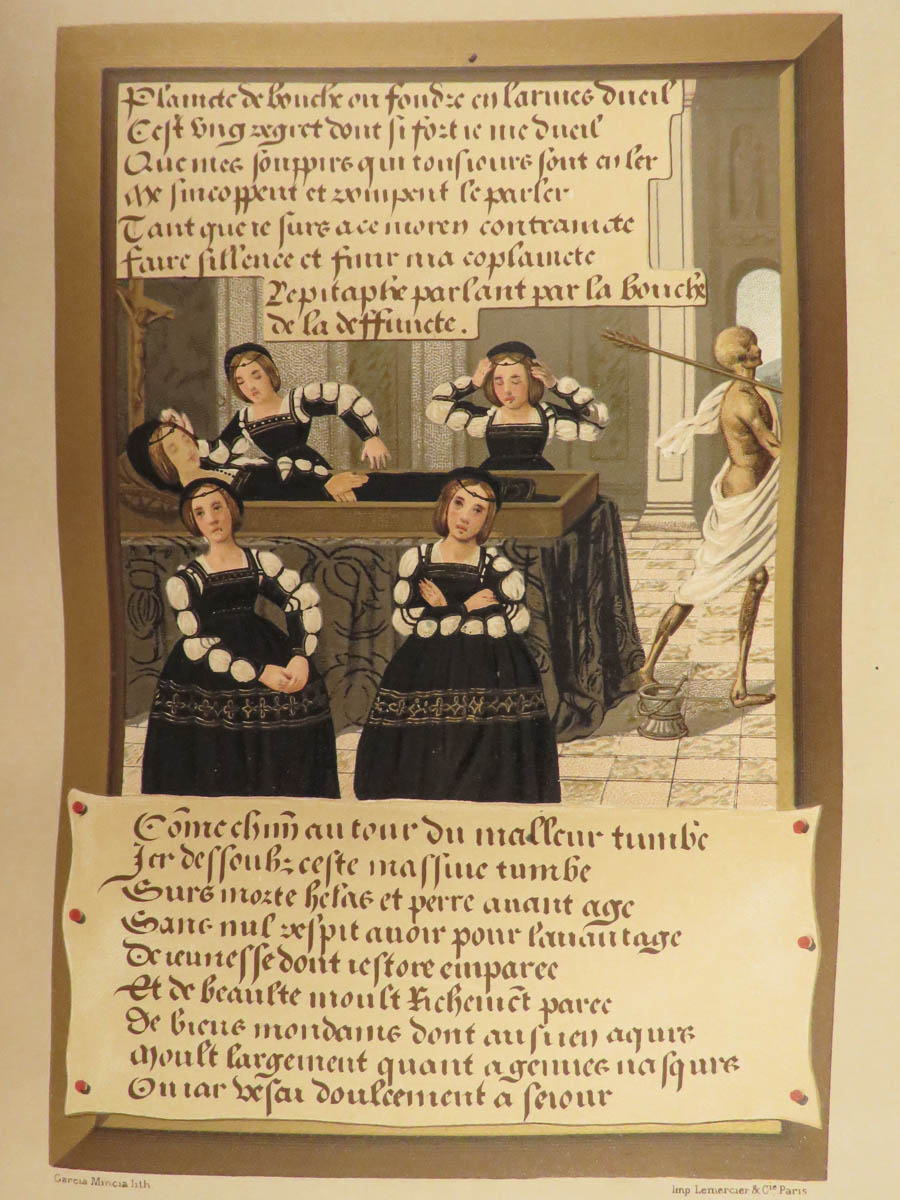 Plaincte de bouche ou fondre en larmes dueil
Cest ung regret dont si fort ie me dueil
Que mes souppirs qui tousiours sont en ler
Me sincoppent et rompent le parler
Tant que ie suys a ce moyen contraincte
faire sillence et finir ma cõplaincte
Lepitaphe parlant par la bouche
de la deffuncte.
Cõme chũn au tour du malleur tumbe
Icy dessoubz ceste massiue tumbe
Suys morte helas et perye auant age
Sans nul respit auoir pour lauantage
De ieunesse dont iestoye emparee
Et de beaulte moult Richemẽt paree
De biens mondains dont aussi en aquis
Moult largement quant a gennes nasquis
Ou iay vescu doulcement a seiour
Garcia Mincia lith
Imp Lemercier & Cie. Paris